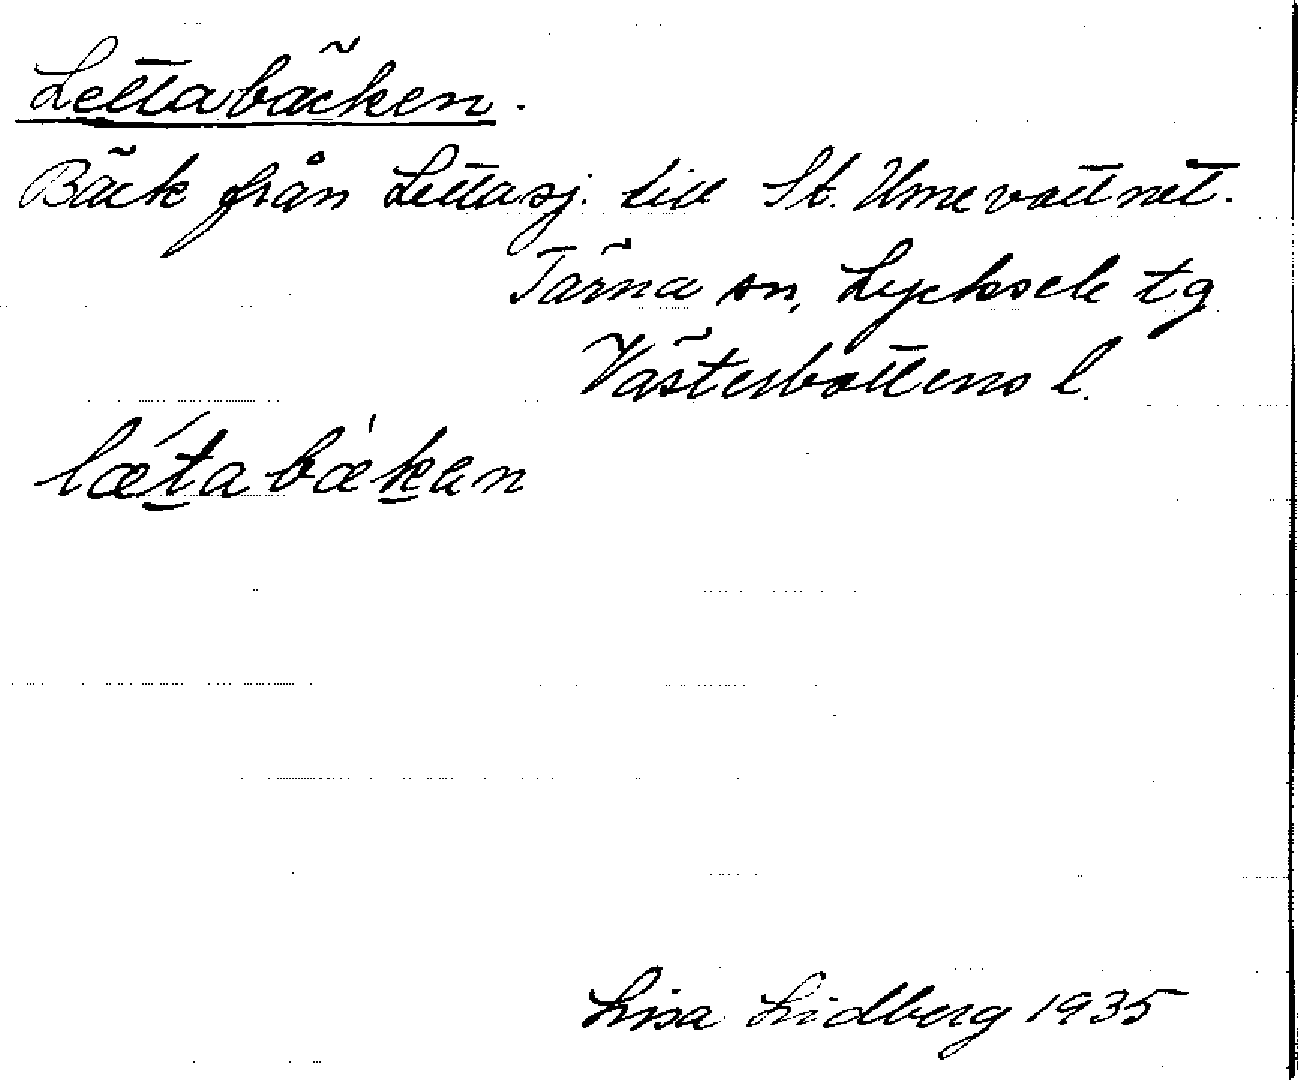 Lettabäcken.
Bäck från Lettasj. till St. Umevattnet.
Tärna sn, Lycksele tg
Västerbottens l.
lǽt̲abæ̀k̲en
Lisa Lidberg 1935